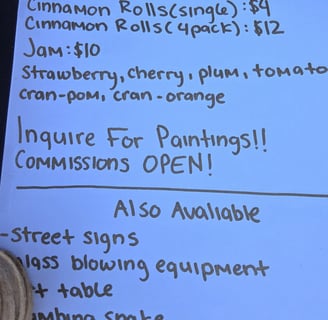 Cinnamon Rolls(single):$4
Cinnamon Rolls(4pack):$12
Jam:$10
Strawberry, cherry, plum, tomato
cran-pom, cran-orange
Inquire For Paintings!!
Commissions OPEN!
Also Avaliable
-street signs
blowing equipment
table